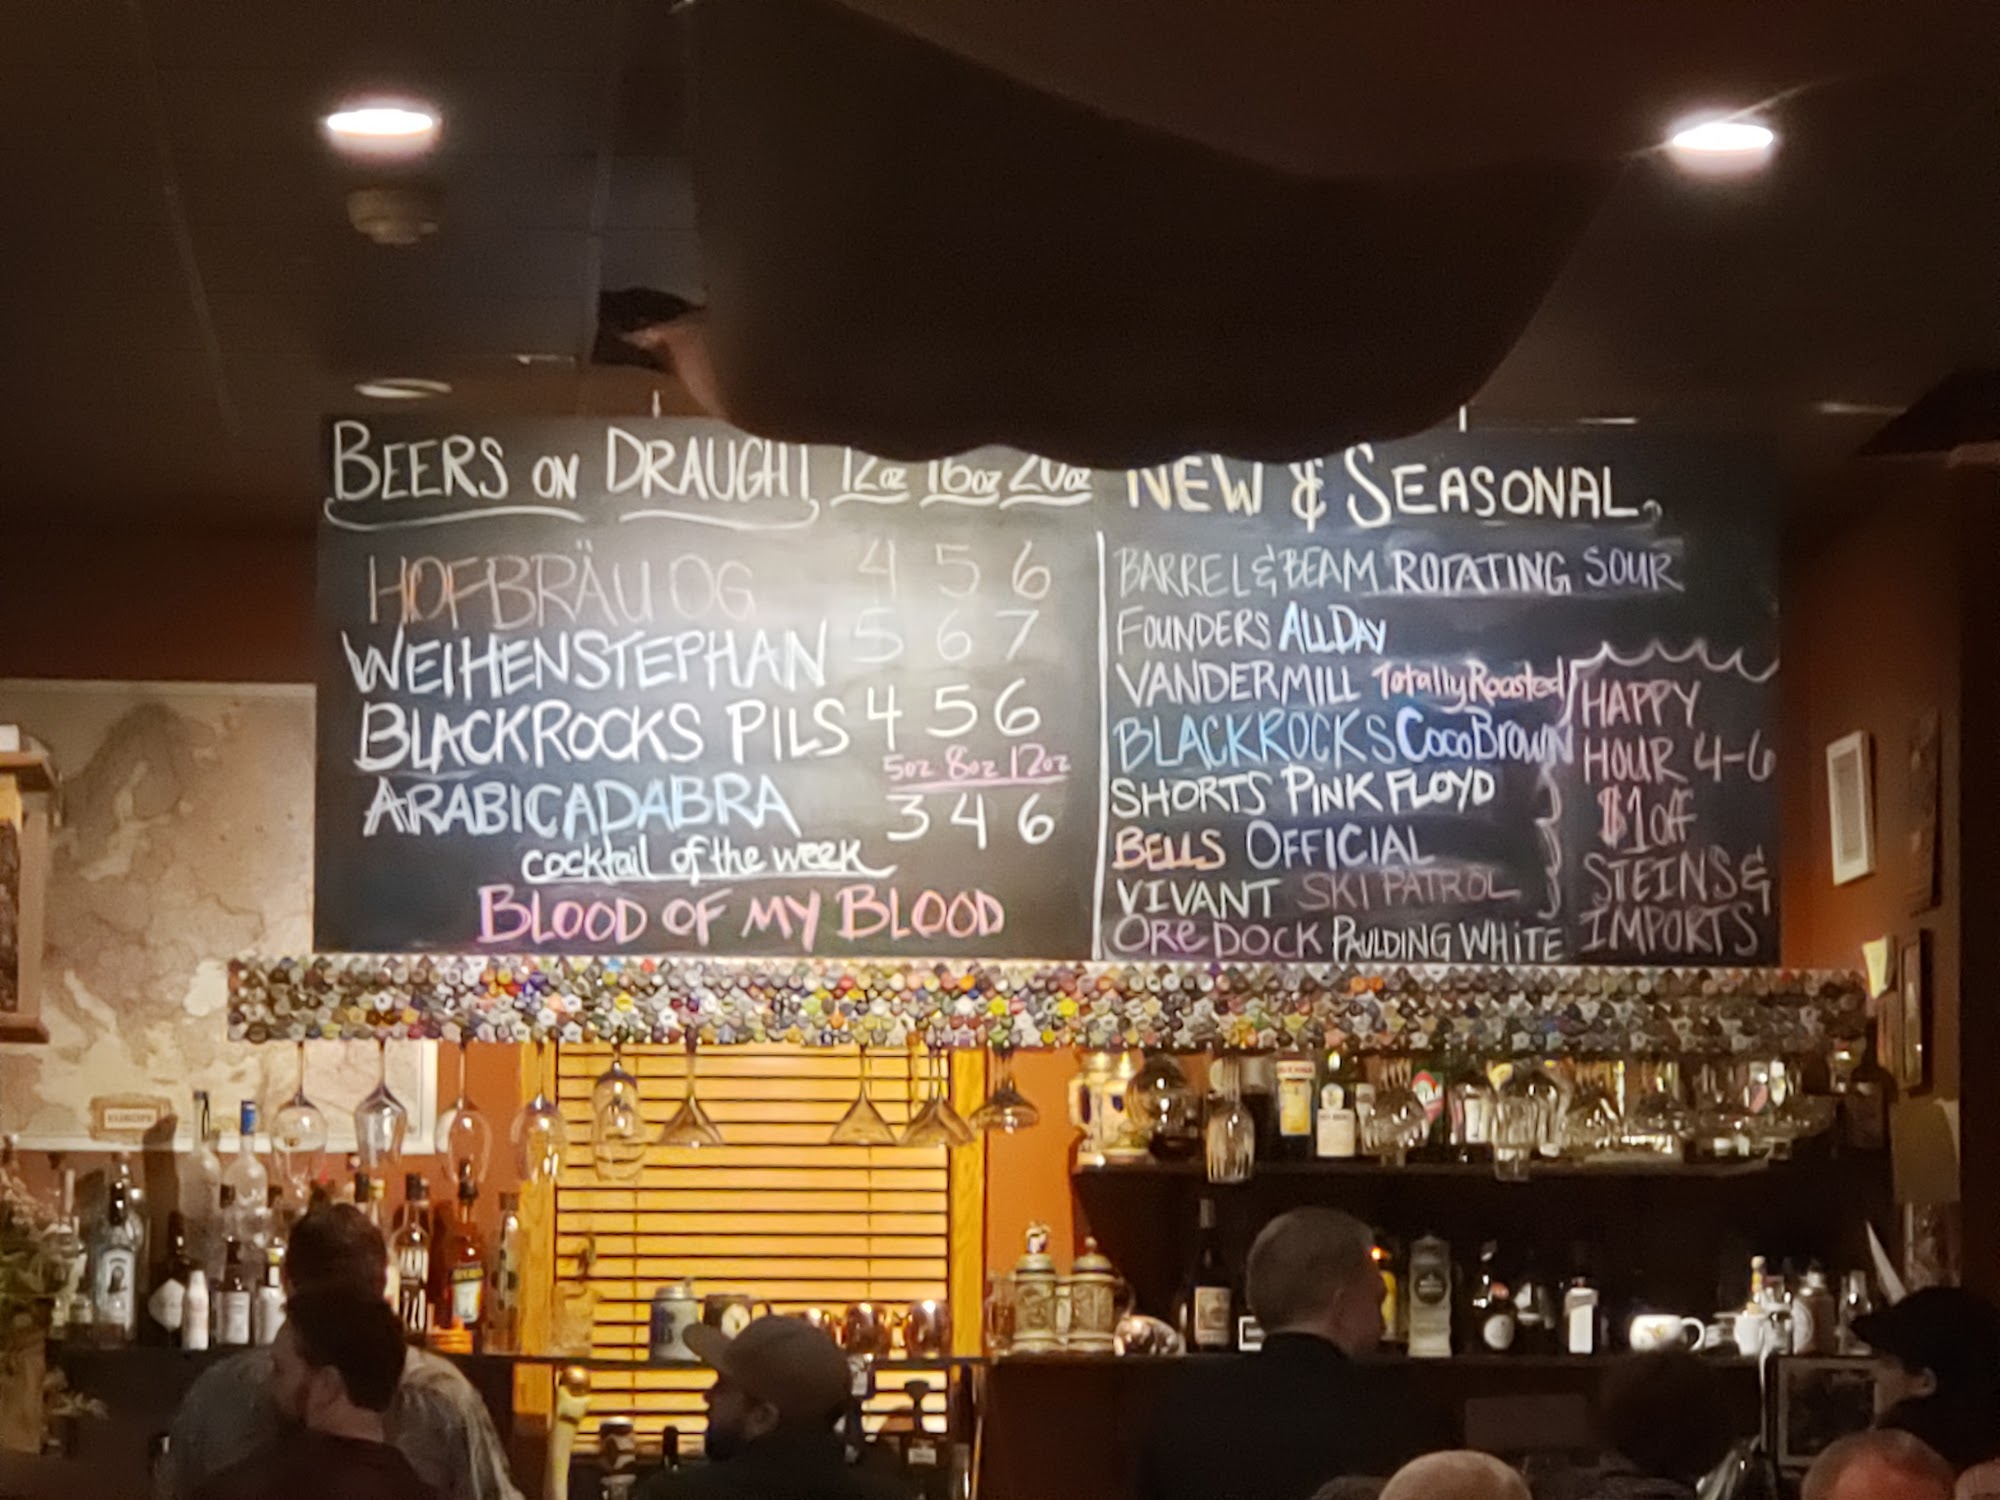 BEERS ON DRAUGHT 12oz 16oz 20oz
HOFBRÄU OG 4 5 6
WEIHENSTEPHAN 5 6 7
BLACKROCKS PILS 4 5 6
5oz 8oz 12oz
ARABICADABRA 3 4 6
cocktail of the week
BLOOD OF MY BLOOD
NEW & SEASONAL
BARREL & BEAM ROTATING SOUR
FOUNDERS ALLDAY
VANDERMILL Totally Roasted
BLACKROCKS COCOBROWN
SHORTS PINK FLOYD
BELLS OFFICIAL
VIVANT SKI PATROL
ORE DOCK PAULDING WHITE
HAPPY
HOUR 4-6
$1 off
STEINS &
IMPORTS